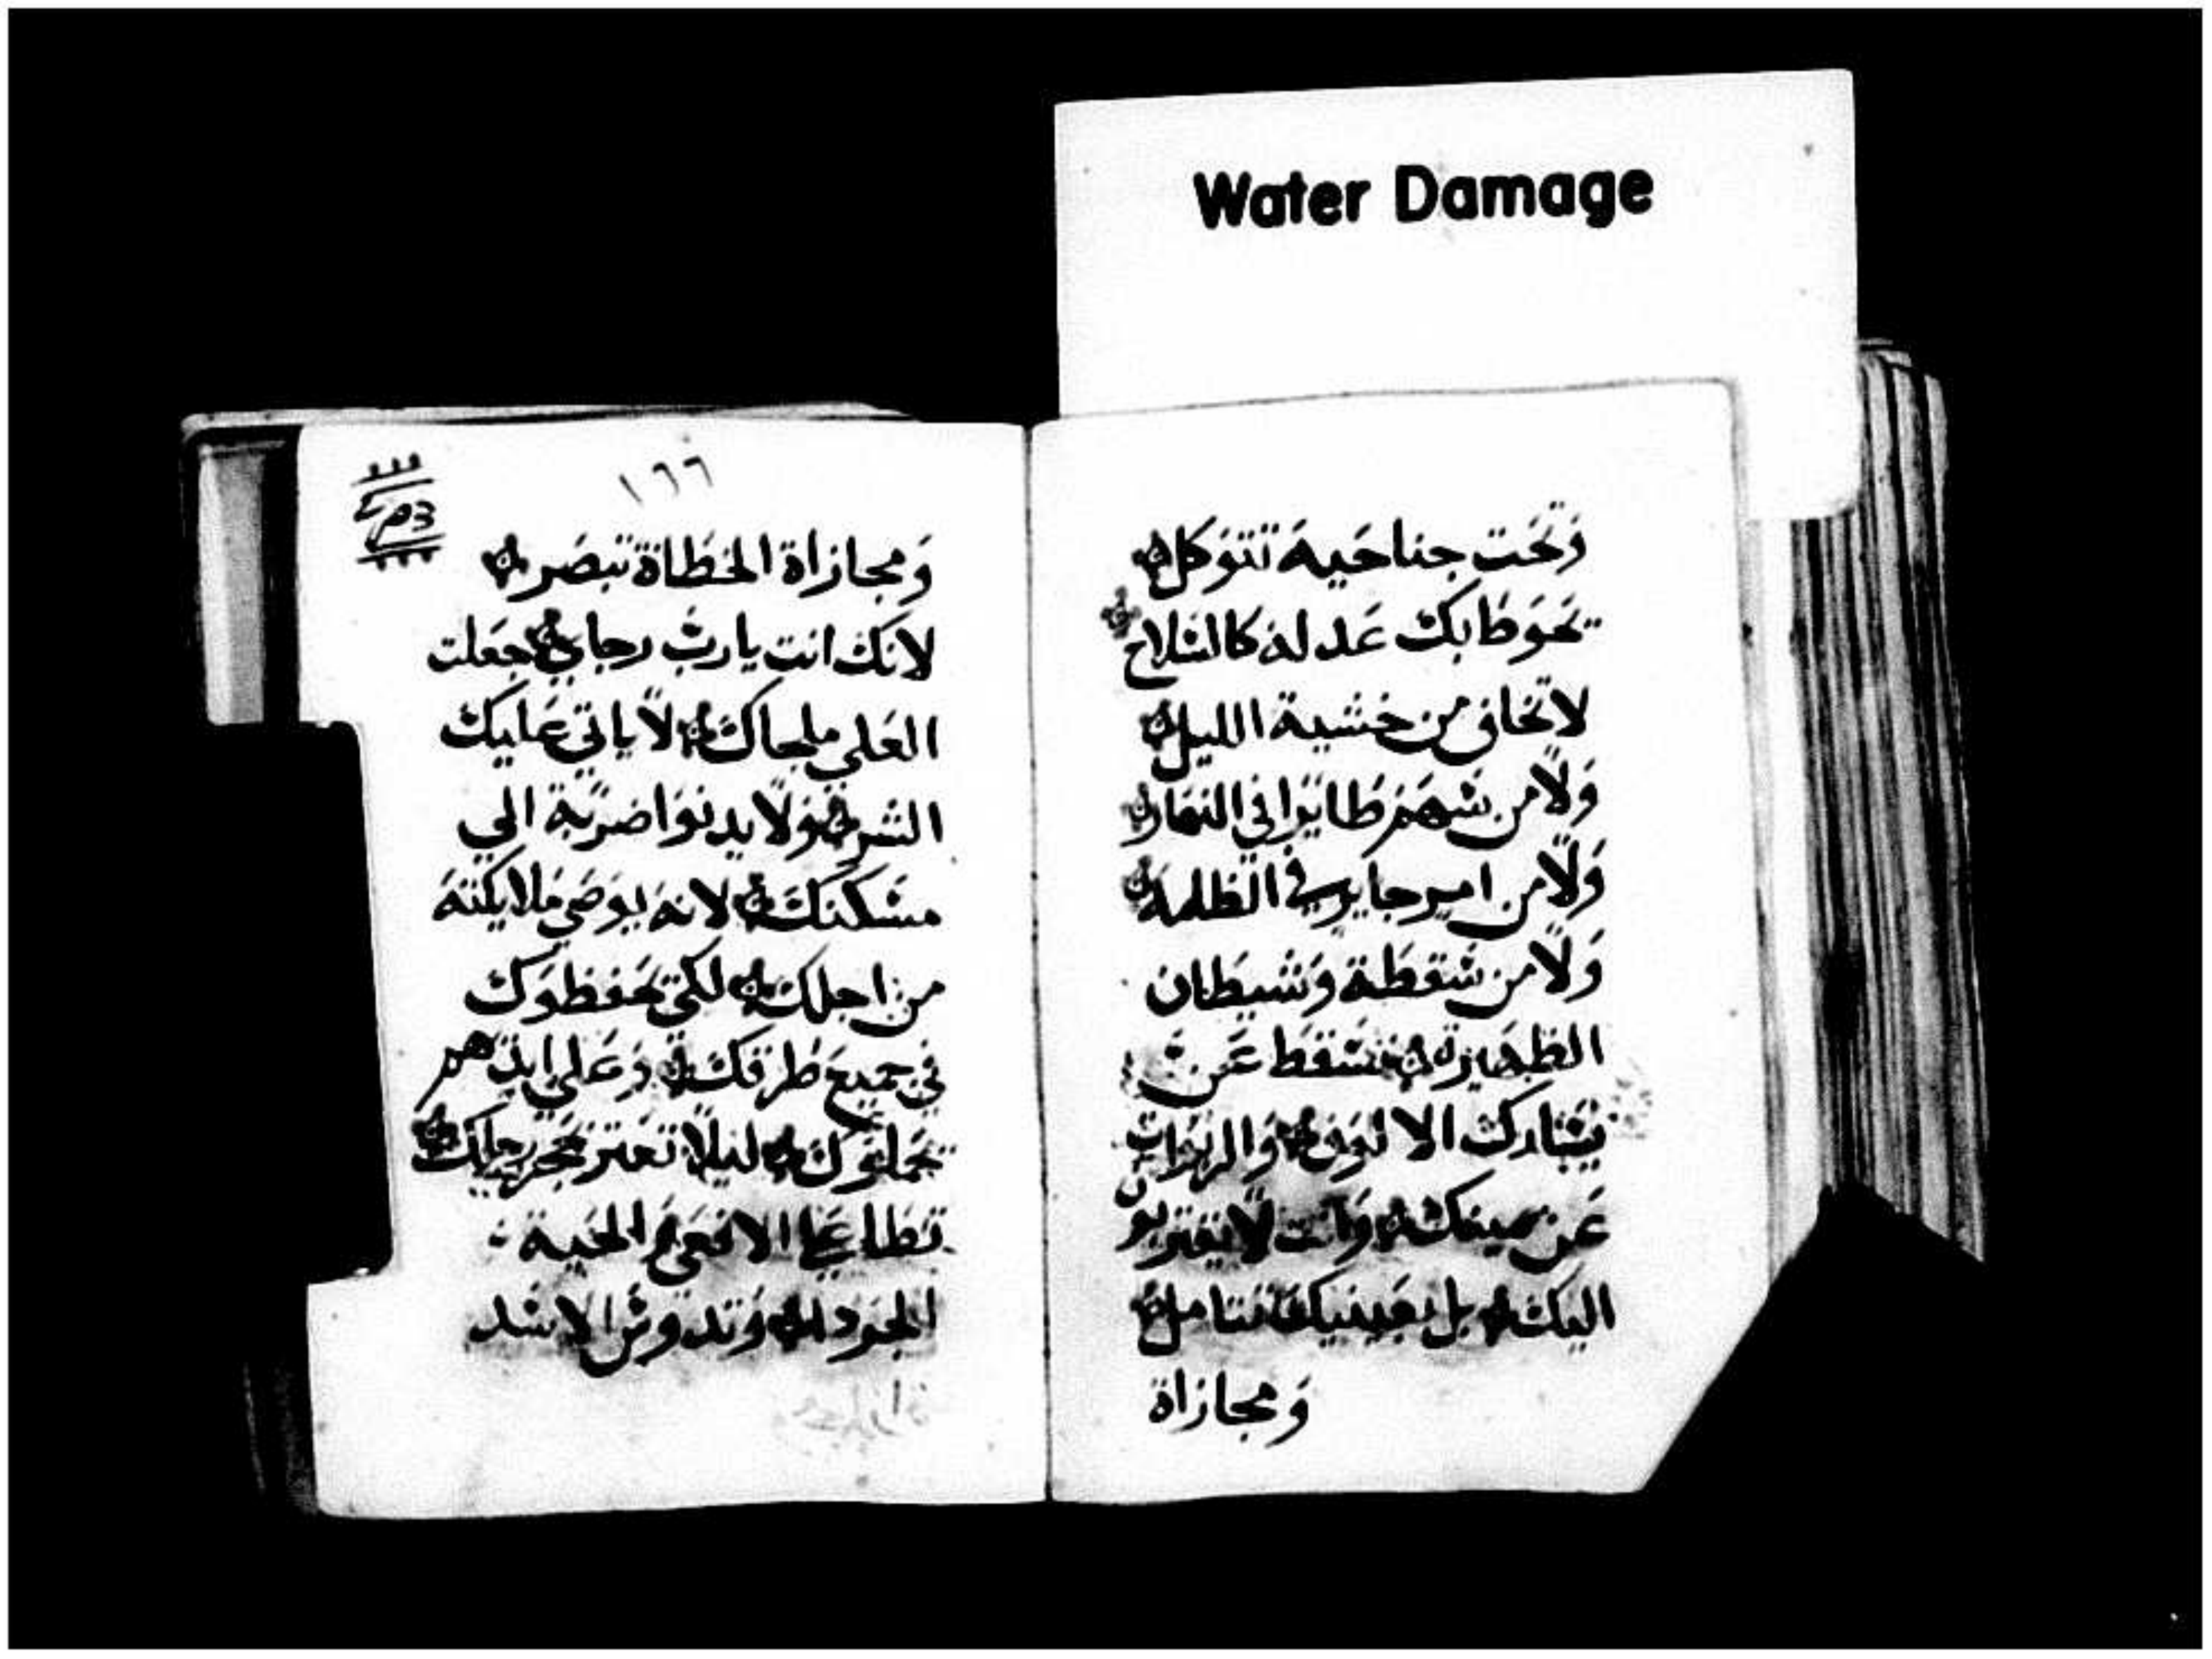 Water Damage
وَتحَت جناحَيه تتوَكل
تحَوَط بك عَدله كالسلاح
لا تخاف من خشية الليل
وَلا من سَهَم طايرا في النهار
وَلا من امير جاير في الظلمه
وَلا من سَقطَة وَشيطان
الظهيرة تسَقط عَن
يسَارك الالوف وَالربوات
عَن يمينك وَانت لا يقتربون
اليك بل بعَينيك تتامل
وَمجازاة
١٦٦
وَمجازاة الخطَاة تبصَر
لانك انت يارب رجاي جعَلت
العَلي ملجاك لا ياتي عَليك
الشر وَلا يدنوَا ضربة الي
مسَكنك لانه يوَصَي ملايكته
من اجلك لكي تحَفظوَك
في جميعَ طرقك وَعَلي ايديهم
تحَملوَك ليلا تعَتر بحجر رجلك
تطا عَلي الافعَي وَ الحَية
الجرَدا وَتدوَس الاسَد